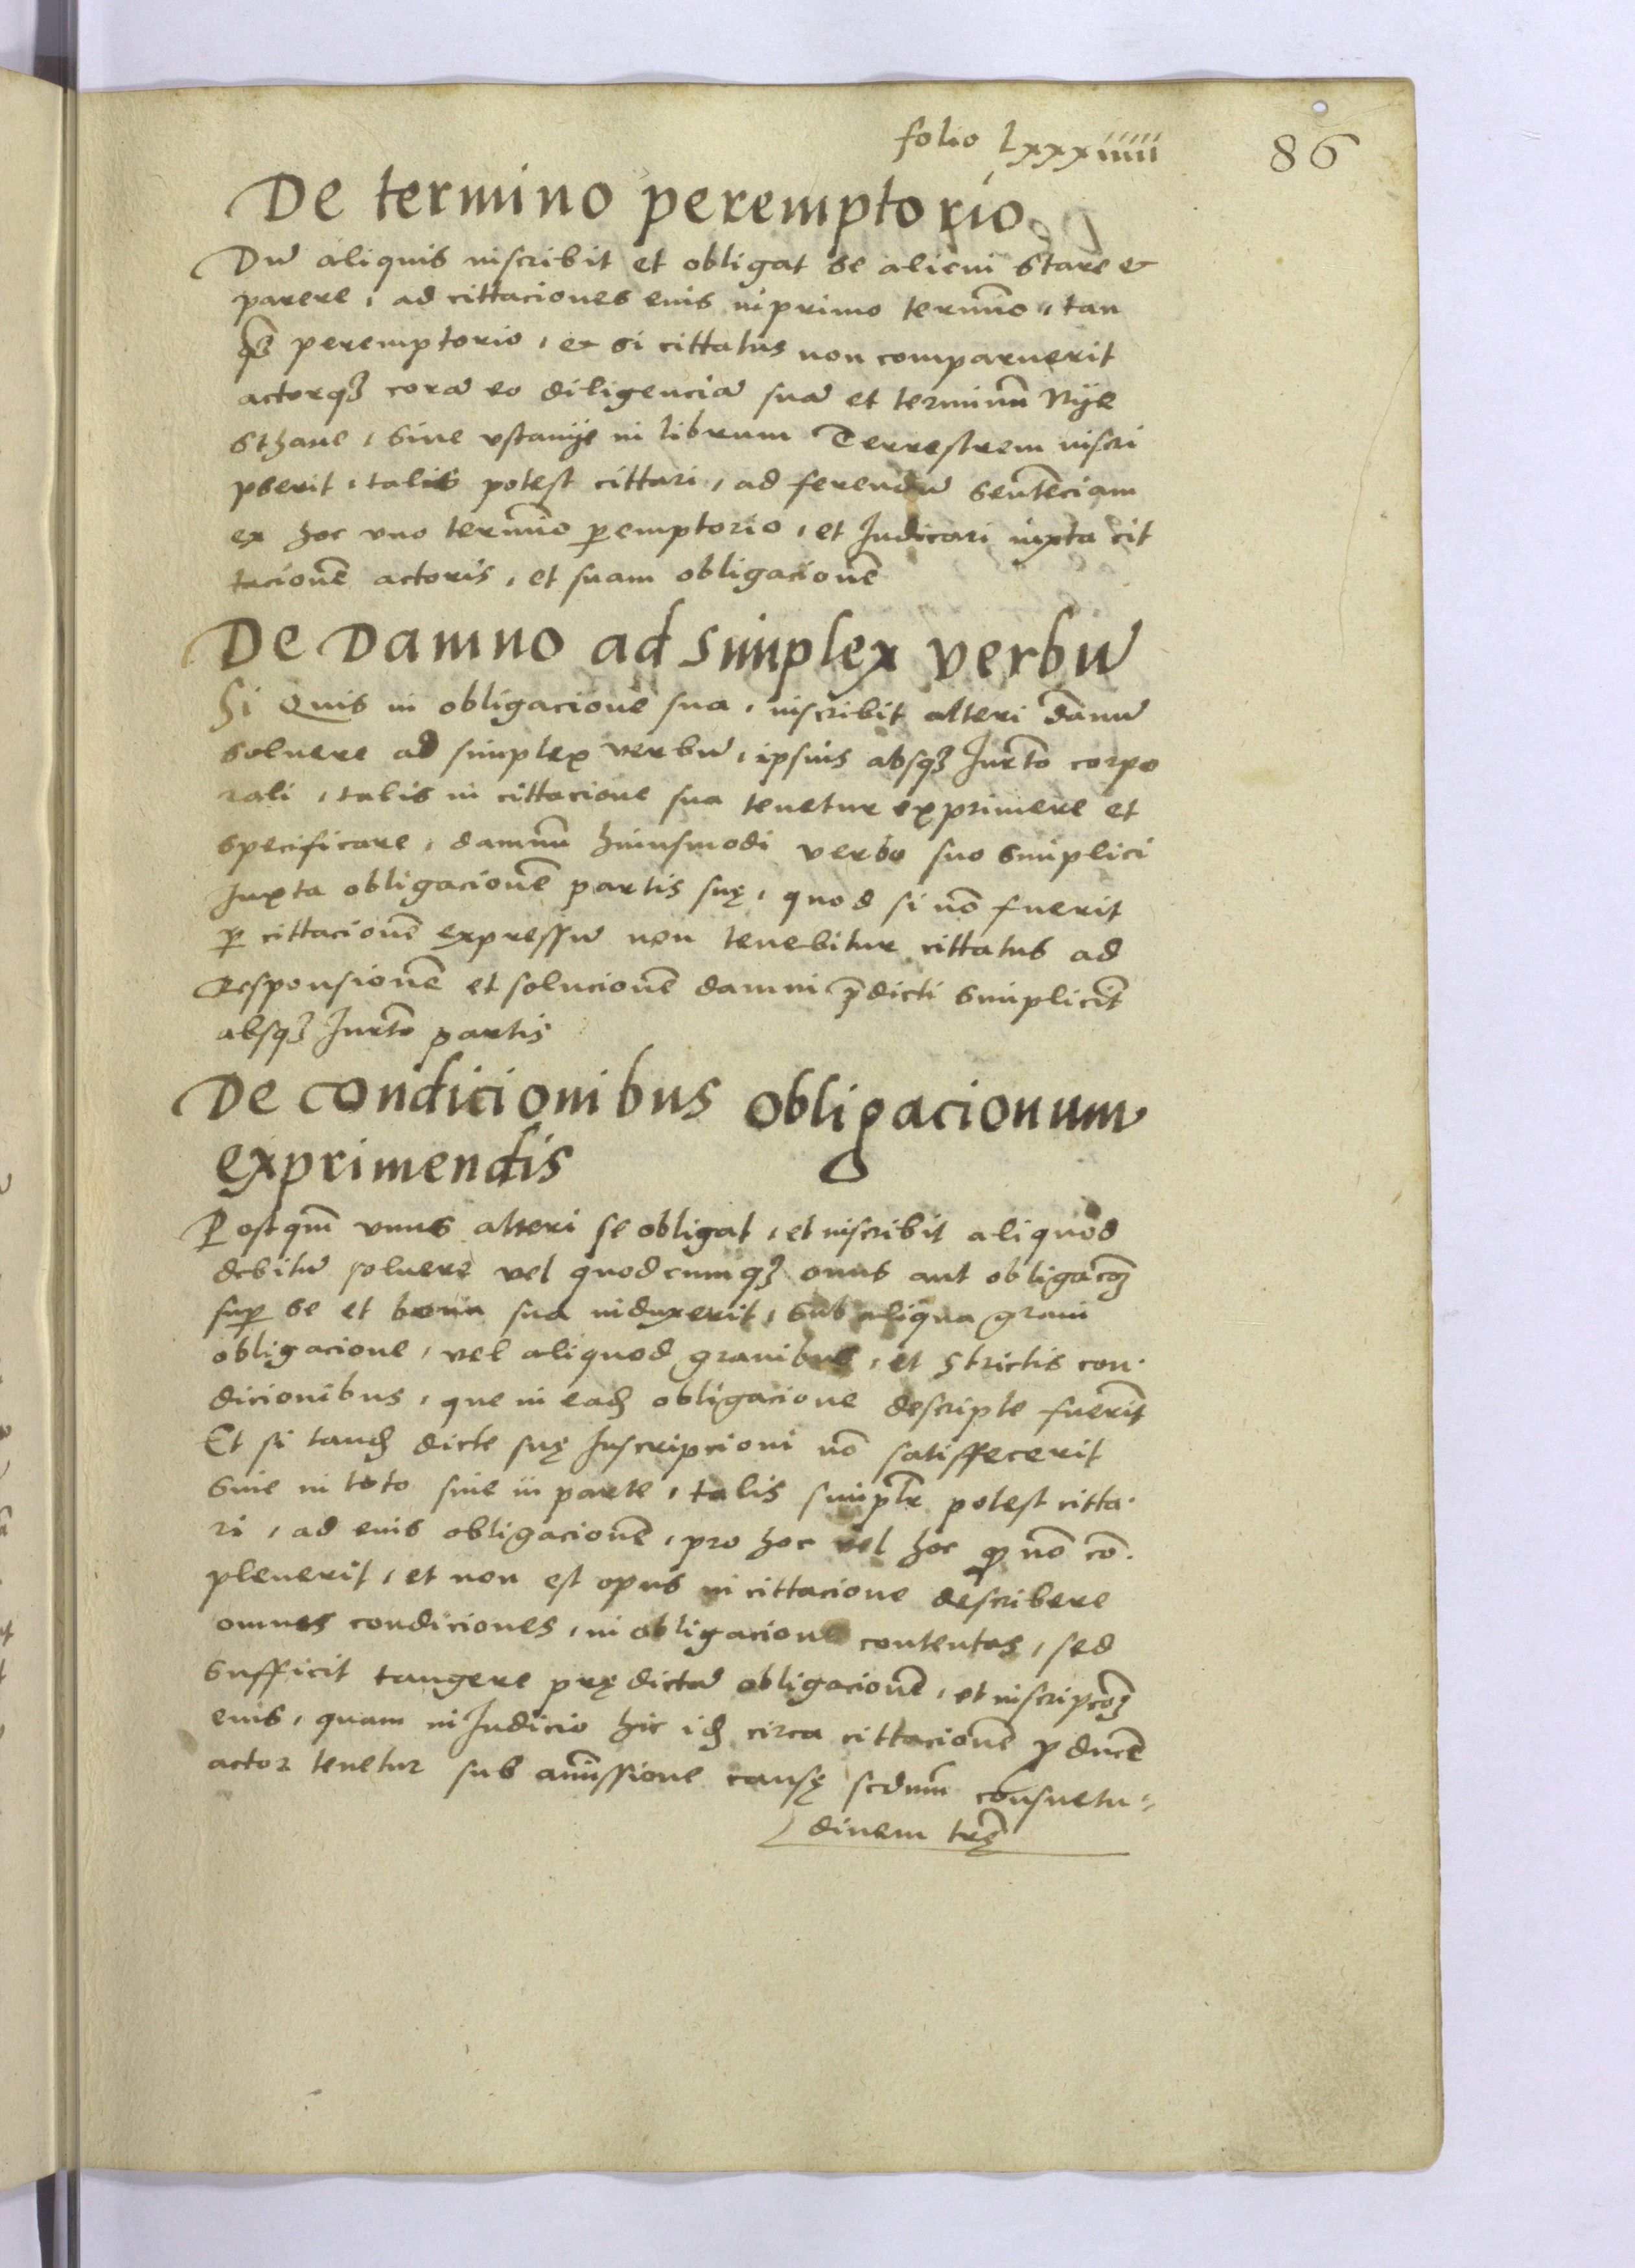 folio lxxxiiiii
86
De termino peremptorio
Dū aliquis inscribit et obligat se alicui stare et
parere, ad cittaciones eius in primo termīo, tan
qȝ peremptorio, et si cittatus non comparuerit
actorqȝ corā eo diligenciā suā et terminū Nye
sthane, siue vstanye in librum Terrestrem inscri
pserit, talis potest cittari, ad ferendū sentēciam
ex hoc vno termīo ꝑemptorio, et Judicari iuxta cit
tacionē actoris, et suam obligacionē
De Damno ad simplex verbū
Si Quis in obligacione sua, inscribit alteri dānū
soluere ad simplex verbū, ipsius absqȝ Jurto corpo
rali, talis in cittacione sua tenetur exprimere et
specificare, damnū huiusmodi verbo suo simplici
Juxta obligacionē partis suę, quod si nō fuerit
ꝑ cittacionē expressū non tenebitur cittatus ad
Responsionē et solucionē damni p̄dicti simplicit̄
absqȝ Jurto partis
De condicionibus obligacionum
exprimendis
Postqm̄ vnus alteri se obligat, et inscribit aliquod
debitū soluere vel quodcumqȝ onus aut obligacōȝ
suꝑ se et bona sua induxerit, sub aliqua graui
obligacione, vel aliquod grauibus, et strictis con-
dicionibus, que in eadȝ obligacione descripte fuerīt
Et si tandȝ dicte suę Inscripcioni nō satisffecerit
siue in toto siue in parte, talis simplr̄ potest citta-
ri, ad eius obligacionē, pro hoc vel hoc ꝙ nō cō-
pleuerit, et non est opus in cittacione describere
omnes condiciones, in obligacione contentas, sed
sufficit tangere prędictā obligacionē, et inscripcōȝ
eius, quam in Judicio hic idȝ circa cittacionē ꝓducē
actor tenetur sub amissione causę scdm̄ consuetu-
dinem tr̄ę